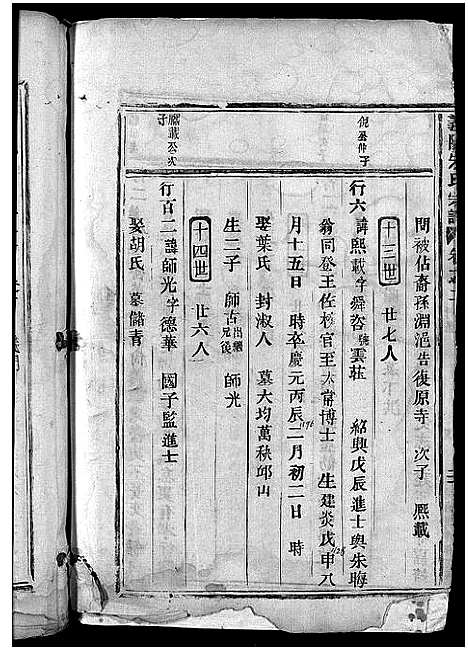 間被佔裔孫淵浥告復原寺 次子 熈載
十三世 廿七人
倪公仲子
行六 諱熙載字舜咨號雲莊 紹興戊辰進士與朱晦
翁同登王佐榜官至太常博士 生建炎戊申八
1128
月十五日 時卒慶元丙辰二月初二日 時
1196
娶葉氏 封淑人 墓大均萬秧邱山
生二子 師古出繼兄後 師光
十四世 廿六人
熙載公次子
行百二諱師光字德華 國子監進士
娶胡氏 墓儲青